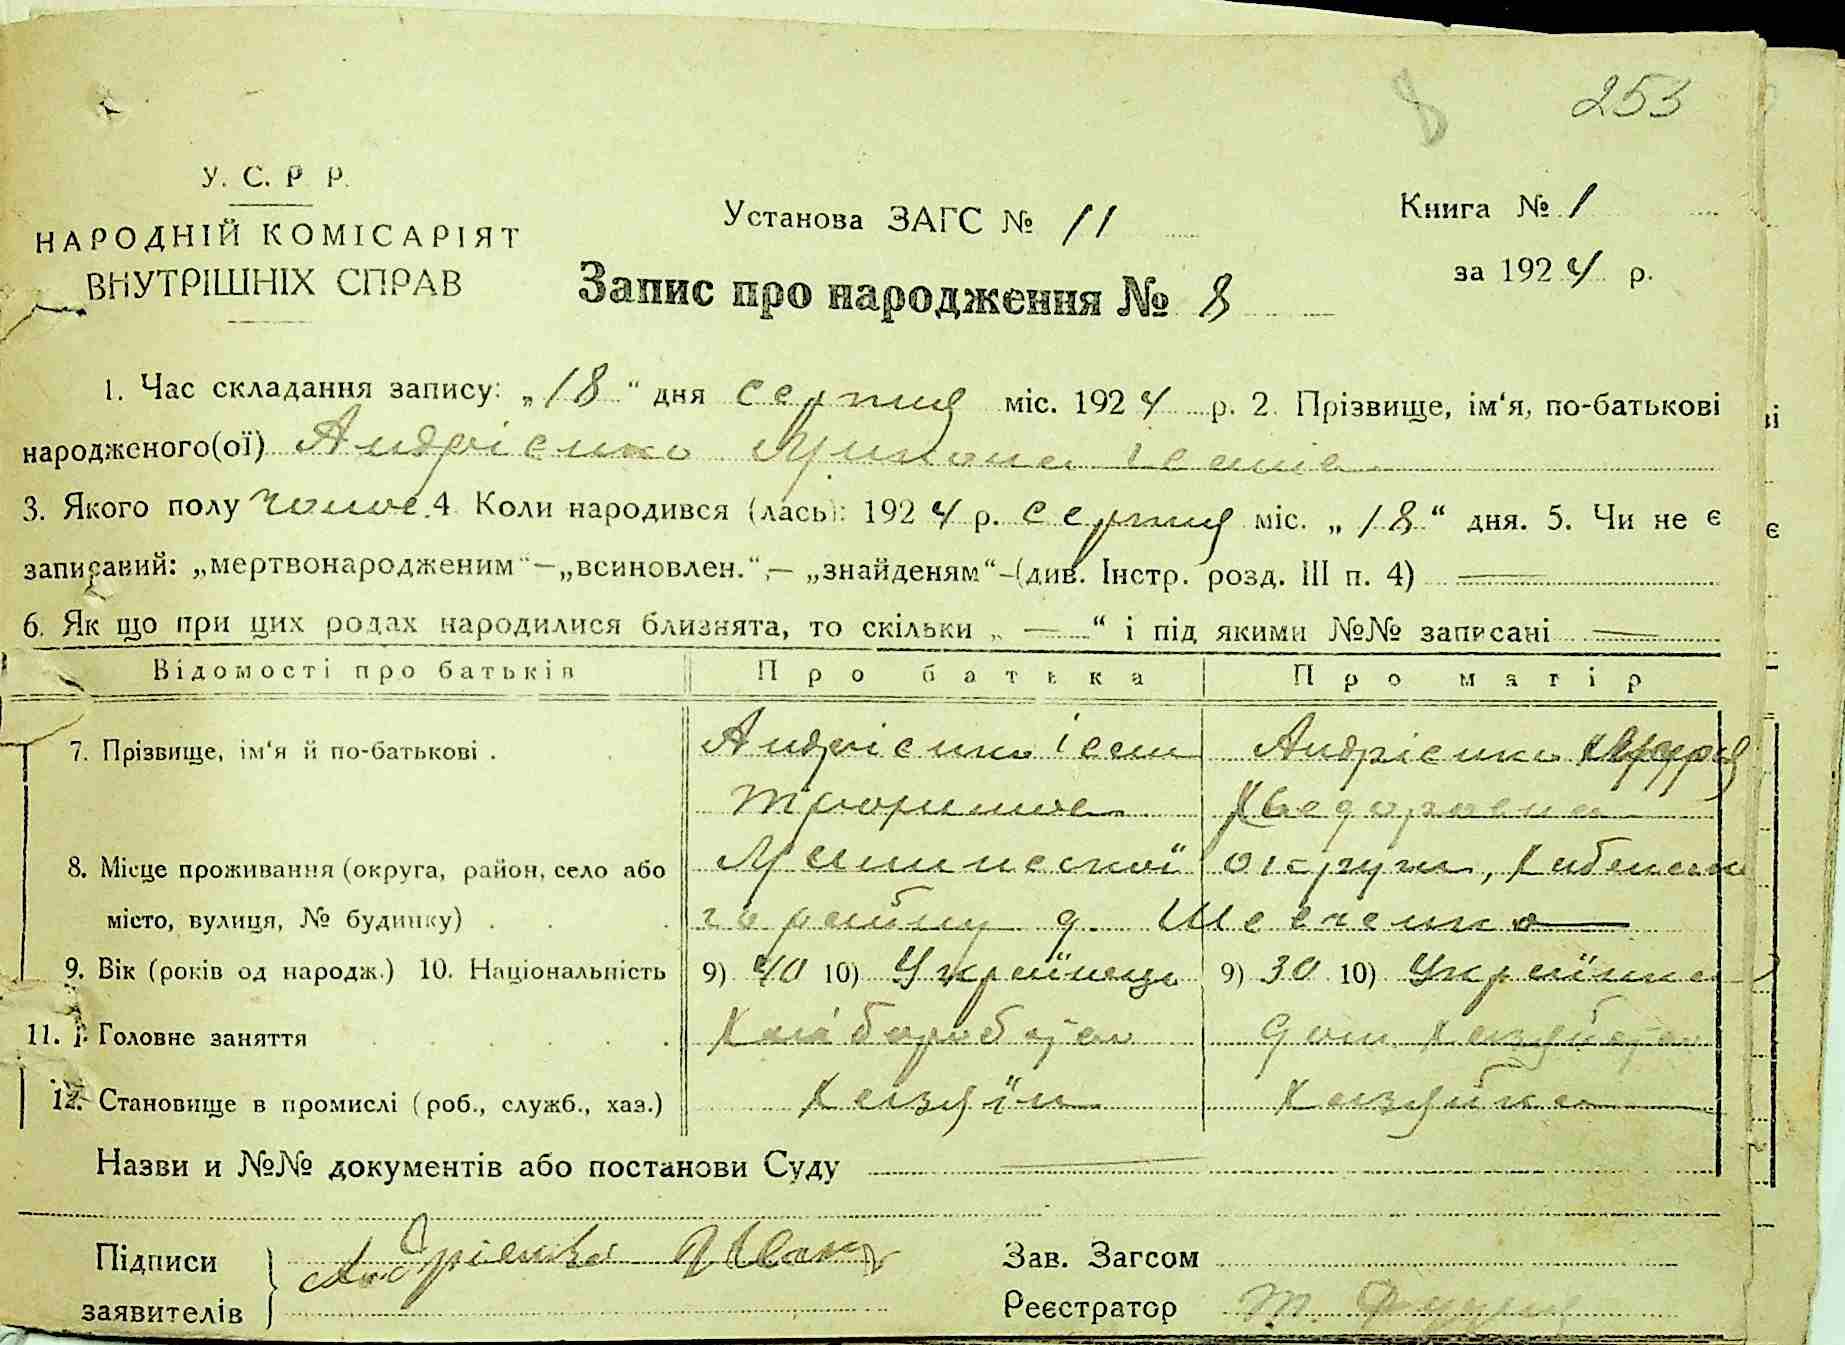 8 253
У. С. Р. Р.
НАРОДНІЙ КОМІСАРІЯТ
ВНУТРІШНІХ СПРАВ
Установа ЗАГС № 11
Книга № 1
за 1924 р.
Запис про народження № 8
1. Час складання запису: „18“ дня серпня міс. 1924 р. 2. Прізвище, ім‘я, по-батькові
народженого(ої) Андрієнко Микола
3. Якого полу чолов. 4 Коли народився (лась): 1924 р. серпня міс. „18“ дня. 5. Чи не є
записаний: „мертвонародженим“—„всиновлен.“,— „знайденям“-(див. Інстр. розд. III п. 4) —
6. Як що при цих родах народилися близнята, то скільки „ — “ і під якими №№ записані —
Відомості про батьків Про батька Про матір
7. Прізвище, ім‘я й по-батькові . Андрієнко Іван Андрієнко
Трохимов. Хведоровна
8. Місце проживання (округа, район, село або округи,
місто, вулиця, № будинку) . району Шевченко
9. Вік (років од народж.) 10. Національність 9) 40 10) Українець 9) 30 10) Українка
11. Головне заняття Хліборобство Дом. хазяйство
12. Становище в промислі (роб., служб., хаз.) Хазяїн Хазяйка
Назви и №№ документів або постанови Суду —
Підписи Андрієнко Иван
заявителів
Зав. Загсом
Реєстратор